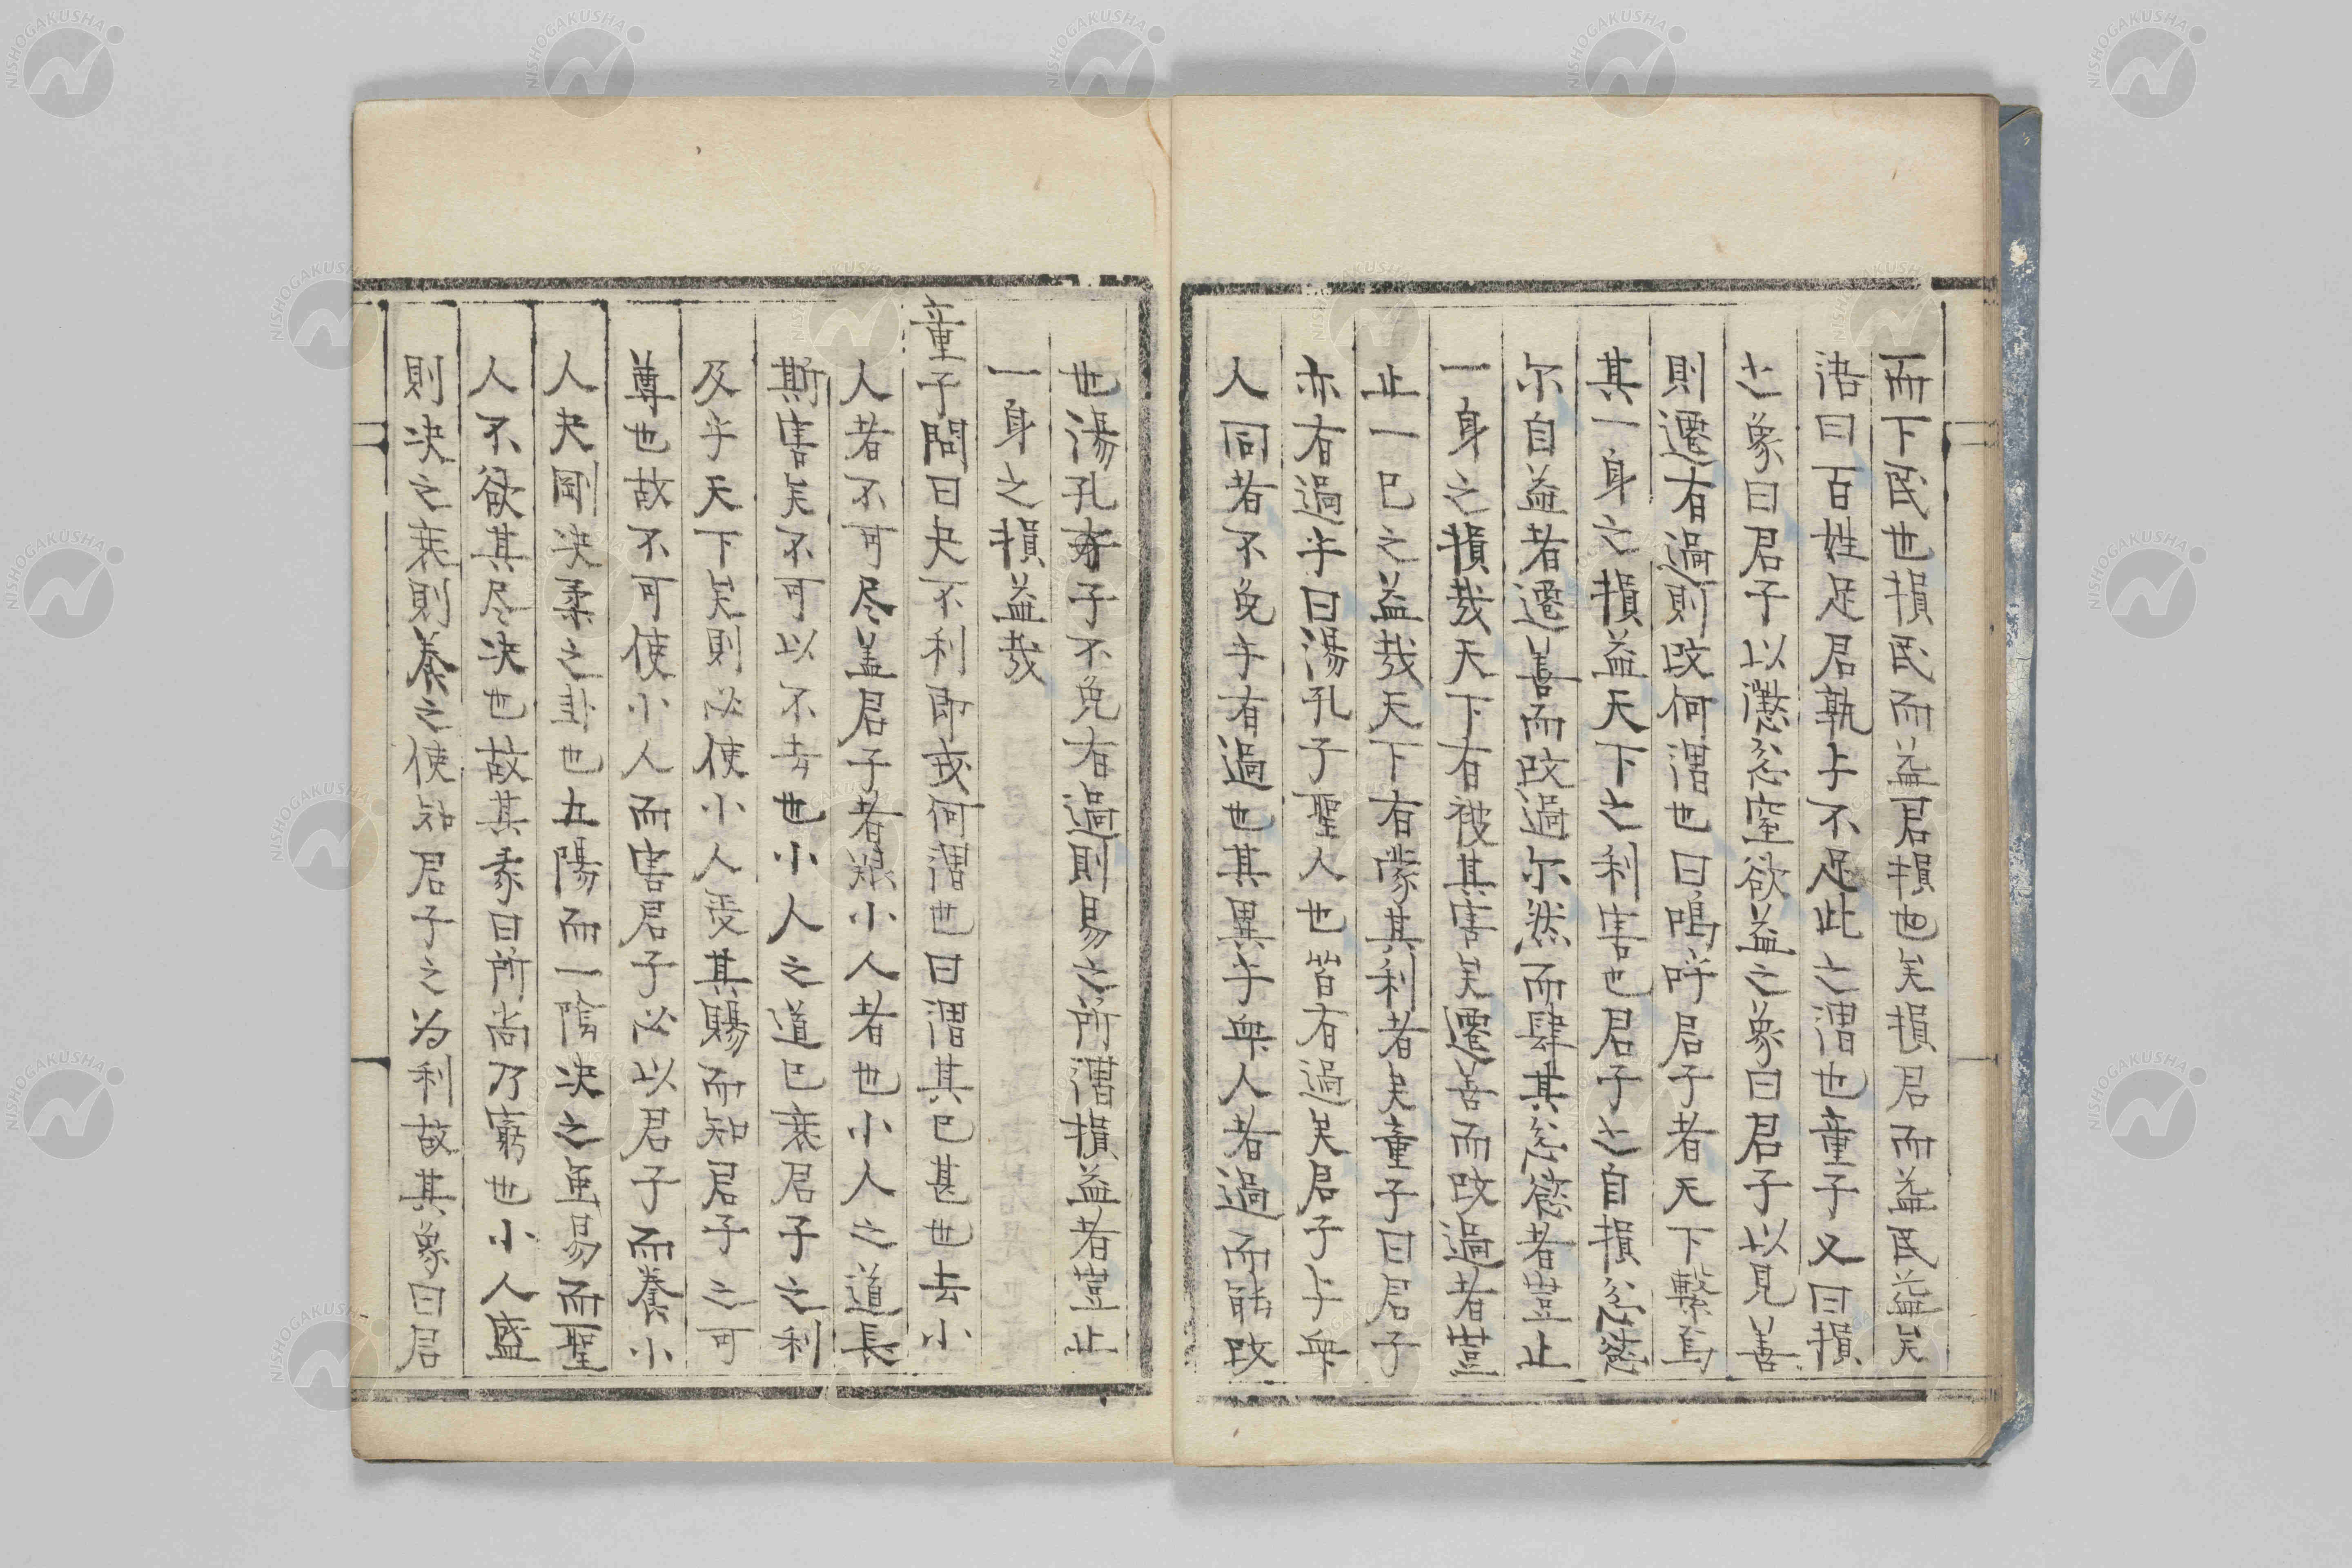 而下民也損民而益君損也矣損君而益民益矣
語曰百姓足君孰与不足此之謂也童子又曰損
之象曰君子以懲忿窒欲益之象曰君子以見善
則遷有過則改何謂也曰嗚呼君子者天下繫焉
其一身之損益天下之利害也君子之自損忿慾
尔自益者遷善而改過尔然而肆其忿慾者豈止
一身之損哉天下有被其害矣遷善而改過者豈
止一己之益哉天下有蒙其利者矣童子曰君子
亦有過乎曰湯孔子聖人也皆有過矣君子与衆
人同者不免乎有過也其異乎衆人者過而能改
也湯孔子不免有過則易之所謂損益者豈止
一身之損益哉
童子問曰夬不利即戎何謂也曰謂其已甚也去小
人者不可尽盖君子者養小人者也小人之道長
斯害矣不可以不去也小人之道已衰君子之利
及乎天下矣則必使小人受其賜而知君子之可
尊也故不可使小人而害君子必以君子而養小
人夬剛决柔之卦也五陽而一陰决之雖易而聖
人不欲其尽决也故其彖曰所尚乃窮也小人盛
則决之衰則養之使知君子之为利故其象曰君
NISHOGAKUSHA